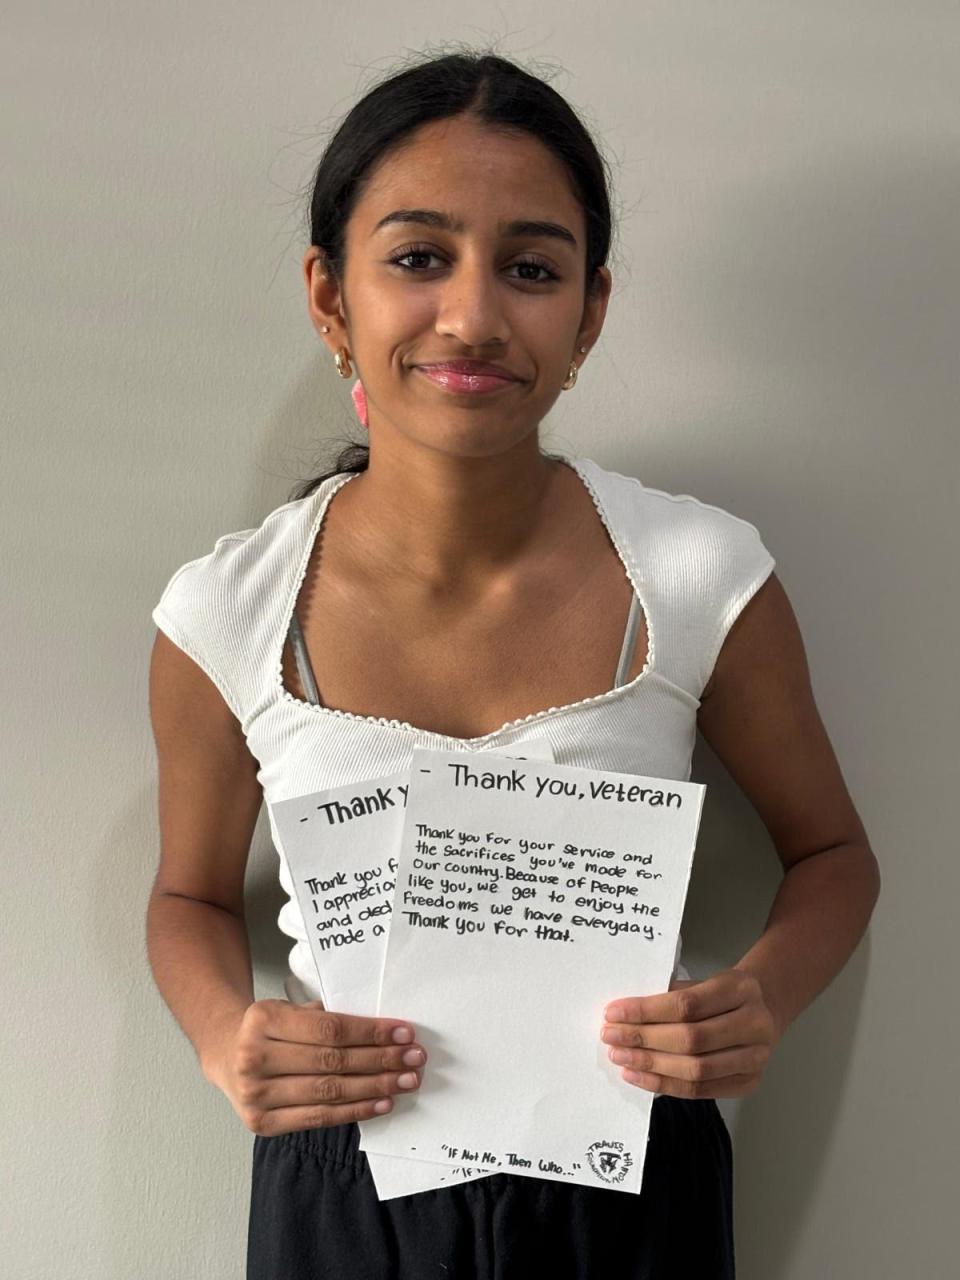 - Thank y
Thank you f
I apprecia
and ded
made a
- "If
- Thank you, Veteran
Thank you for your service and
the sacrifices you've made for
our country. Because of people
like you, we get to enjoy the
freedoms we have everyday.
Thank you for that.
- "If Not Me, Then Who..."
TRAVIS MANION
FOUNDATION